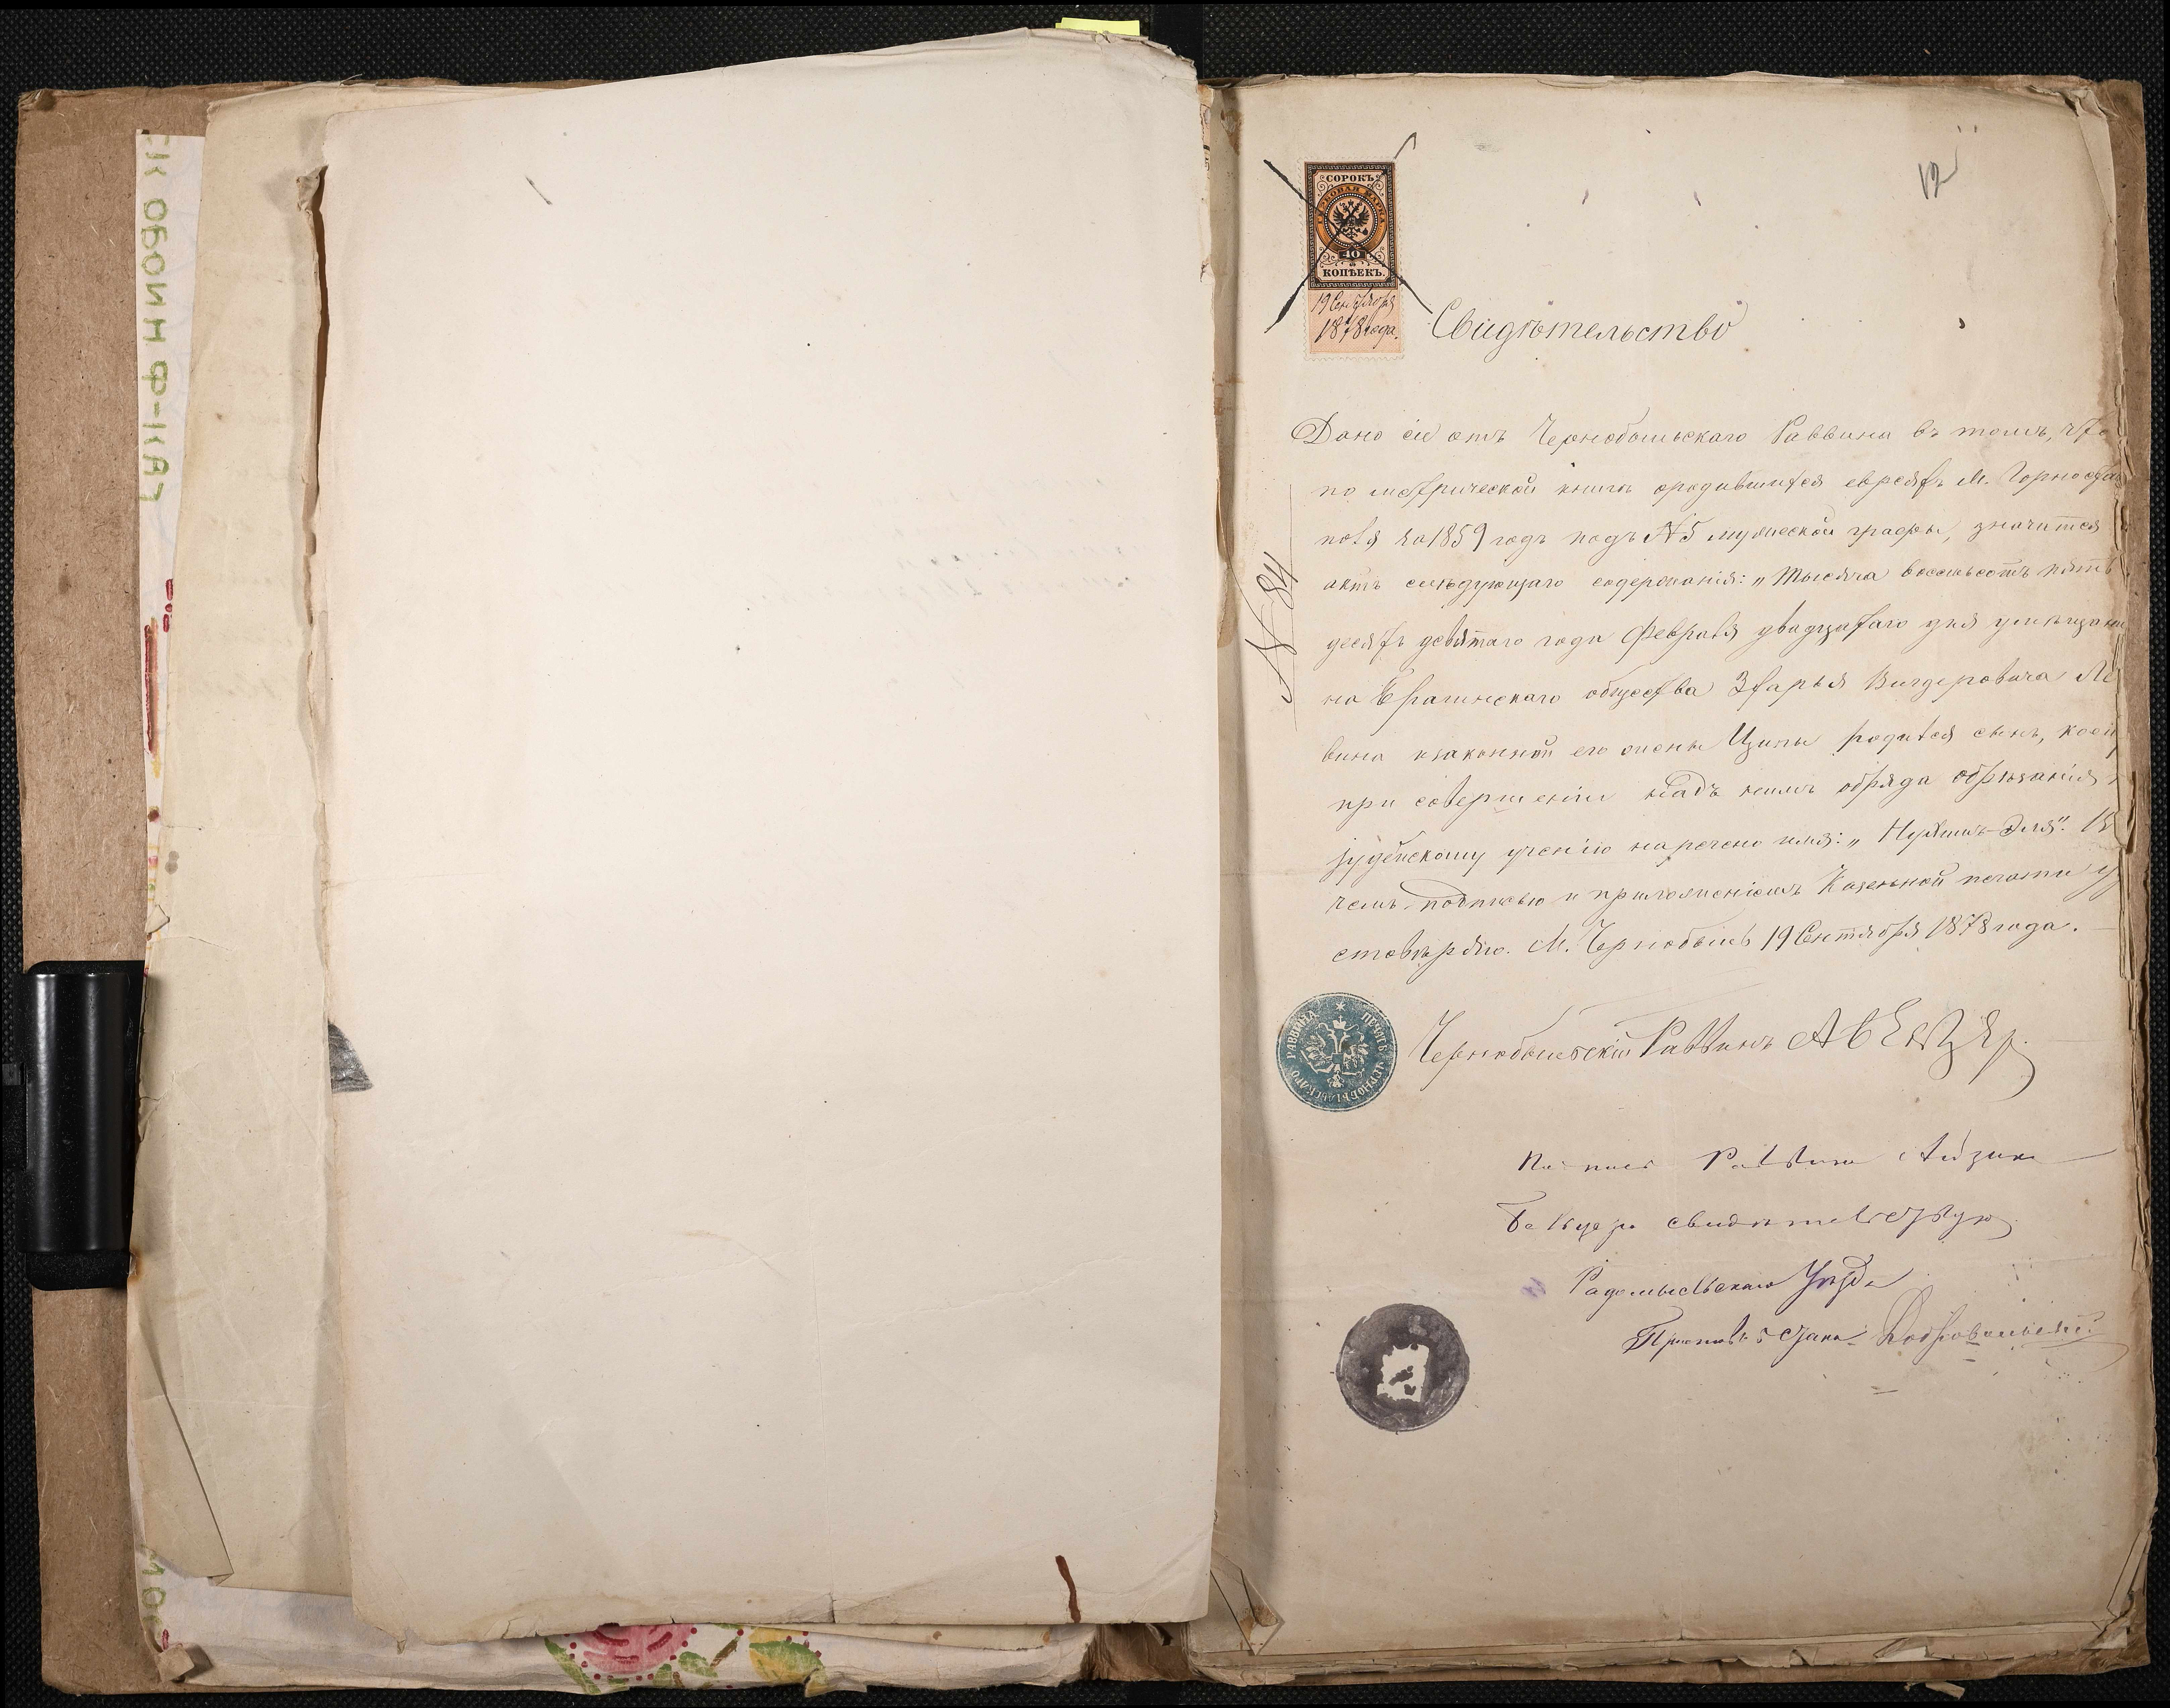 СК ОБОИН Ф-КА
12
СОРОКЪ
ГЕРБОВАЯ МАРКА
40
КОПѢЕКЪ.
19 Сентября
1878 года.
Свидѣтельство
№ 84
Дано сіе отъ Чернобыльскаго Раввина въ томъ, что
по метрической книгѣ о родившихся евреяхъ М. Горностай
поля за 1859 годъ подъ №5 мужеской графы, значится
актъ слѣдующаго содержанія: „Тысяча восемьсотъ пять
десятъ девятаго года Февраля двадцатаго дня у мѣщани
на Брагинскаго общества Вигдеровича Ле
вина и законной его жены Ципы родился сынъ, коему
при совершеніи надъ нимъ обряда обрѣзанія
іудейскому ученію наречено имя: „
чемъ подписью и приложеніемъ Казенной печати у
стовѣряю. М. Чернобыль 19 Сентября 1878 года.
ПЕЧАТЬ ЧЕРНОБЫЛЬСКАГО РАВВИНА
Чернобыльскій Раввинъ
Раввина Айзика
свидѣтельствую
Радомысльскаго Уѣзда
Приставъ 5 Стана Добровольскій